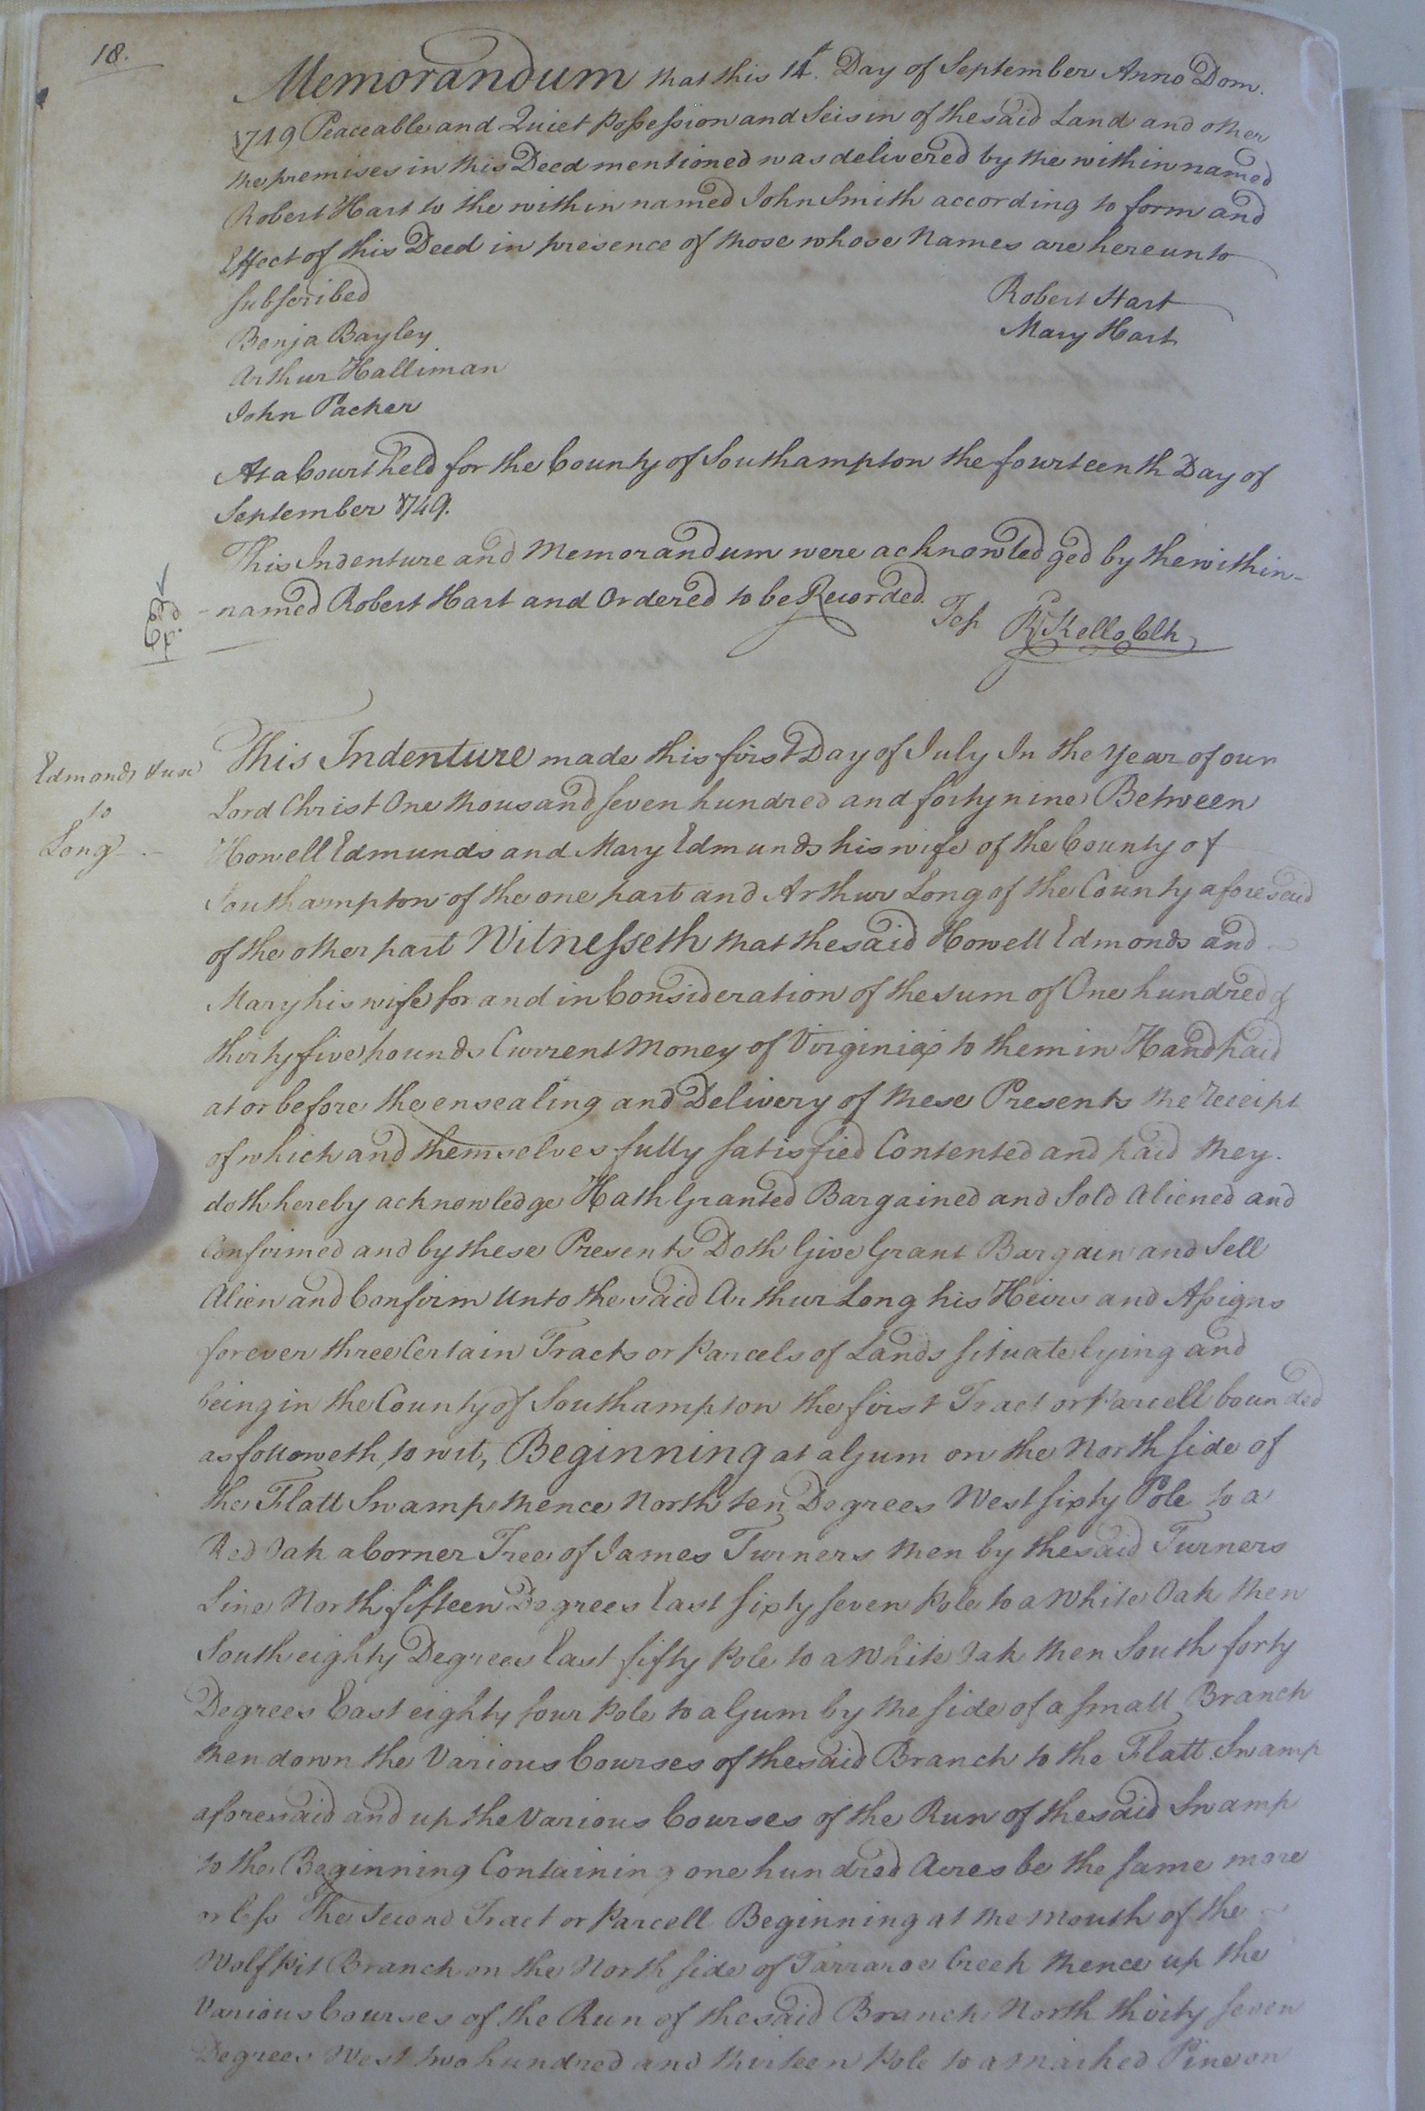 18.
Memorandum that this 14th. Day of September Anno Dom.
1749 Peaceable and Quiet Possession and Seisin of the said Land and other
the premises in this Deed mentioned was delivered by the within named
Robert Hart to the within named John Smith according to form and
Effect of this Deed in presence of those whose Names are hereunto
subscribed
Robert Hart
Mary Hart
Benja Bayley
Arthur Halliman
John Packer
At a Court held for the County of Southampton the fourteenth Day of
September 1749.
This Indenture and Memorandum were acknowledged by the within-
-named Robert Hart and Ordered to be Recorded.
Test Rd Kello Clk
Edmonds &ux
to
Long
This Indenture made this first Day of July In the Year of our
Lord Christ One thousand seven hundred and forty nine Between
Howell Edmunds and Mary Edmunds his wife of the County of
Southampton of the one part and Arthur Long of the County aforesaid
of the other part Witnesseth that the said Howell Edmonds and
Mary his wife for and in Consideration of the sum of One hundred &
thirty five pounds Current Money of Virginia to them in Hand paid
at or before the ensealing and Delivery of these Presents the Receipt
of which and themselves fully satisfied Contented and paid they
doth hereby acknowledge Hath Granted Bargained and Sold Aliened and
Confirmed and by these Presents Doth Give Grant Bargain and Sell
Alien and Confirm Unto the said Arthur Long his Heirs and Assigns
forever three Certain Tracts or Parcels of Lands situate lying and
being in the County of Southampton the first Tract or Parcell bounded
as followeth, to wit, Beginning at a Gum on the North side of
the Flatt Swamp thence North ten Degrees West sixty Pole to a
Red Oak a Corner Tree of James Turners then by the said Turners
Line North fifteen Degrees East sixty seven Pole to a White Oak then
South eighty Degrees East fifty Pole to a White Oak then South forty
Degrees East eighty four Pole to a Gum by the side of a small Branch
then down the Various Courses of the said Branch to the Flatt Swamp
aforesaid and up the Various Courses of the Run of the said Swamp
to the Beginning Containing one hundred Acres be the same more
or less The Second Tract or Parcell Beginning at the Mouth of the
Wolf Pit Branch on the North side of Tarraroe Creek thence up the
Various Courses of the Run of the said Branch North thirty seven
Degrees West two hundred and thirteen Pole to a Marked Pine on